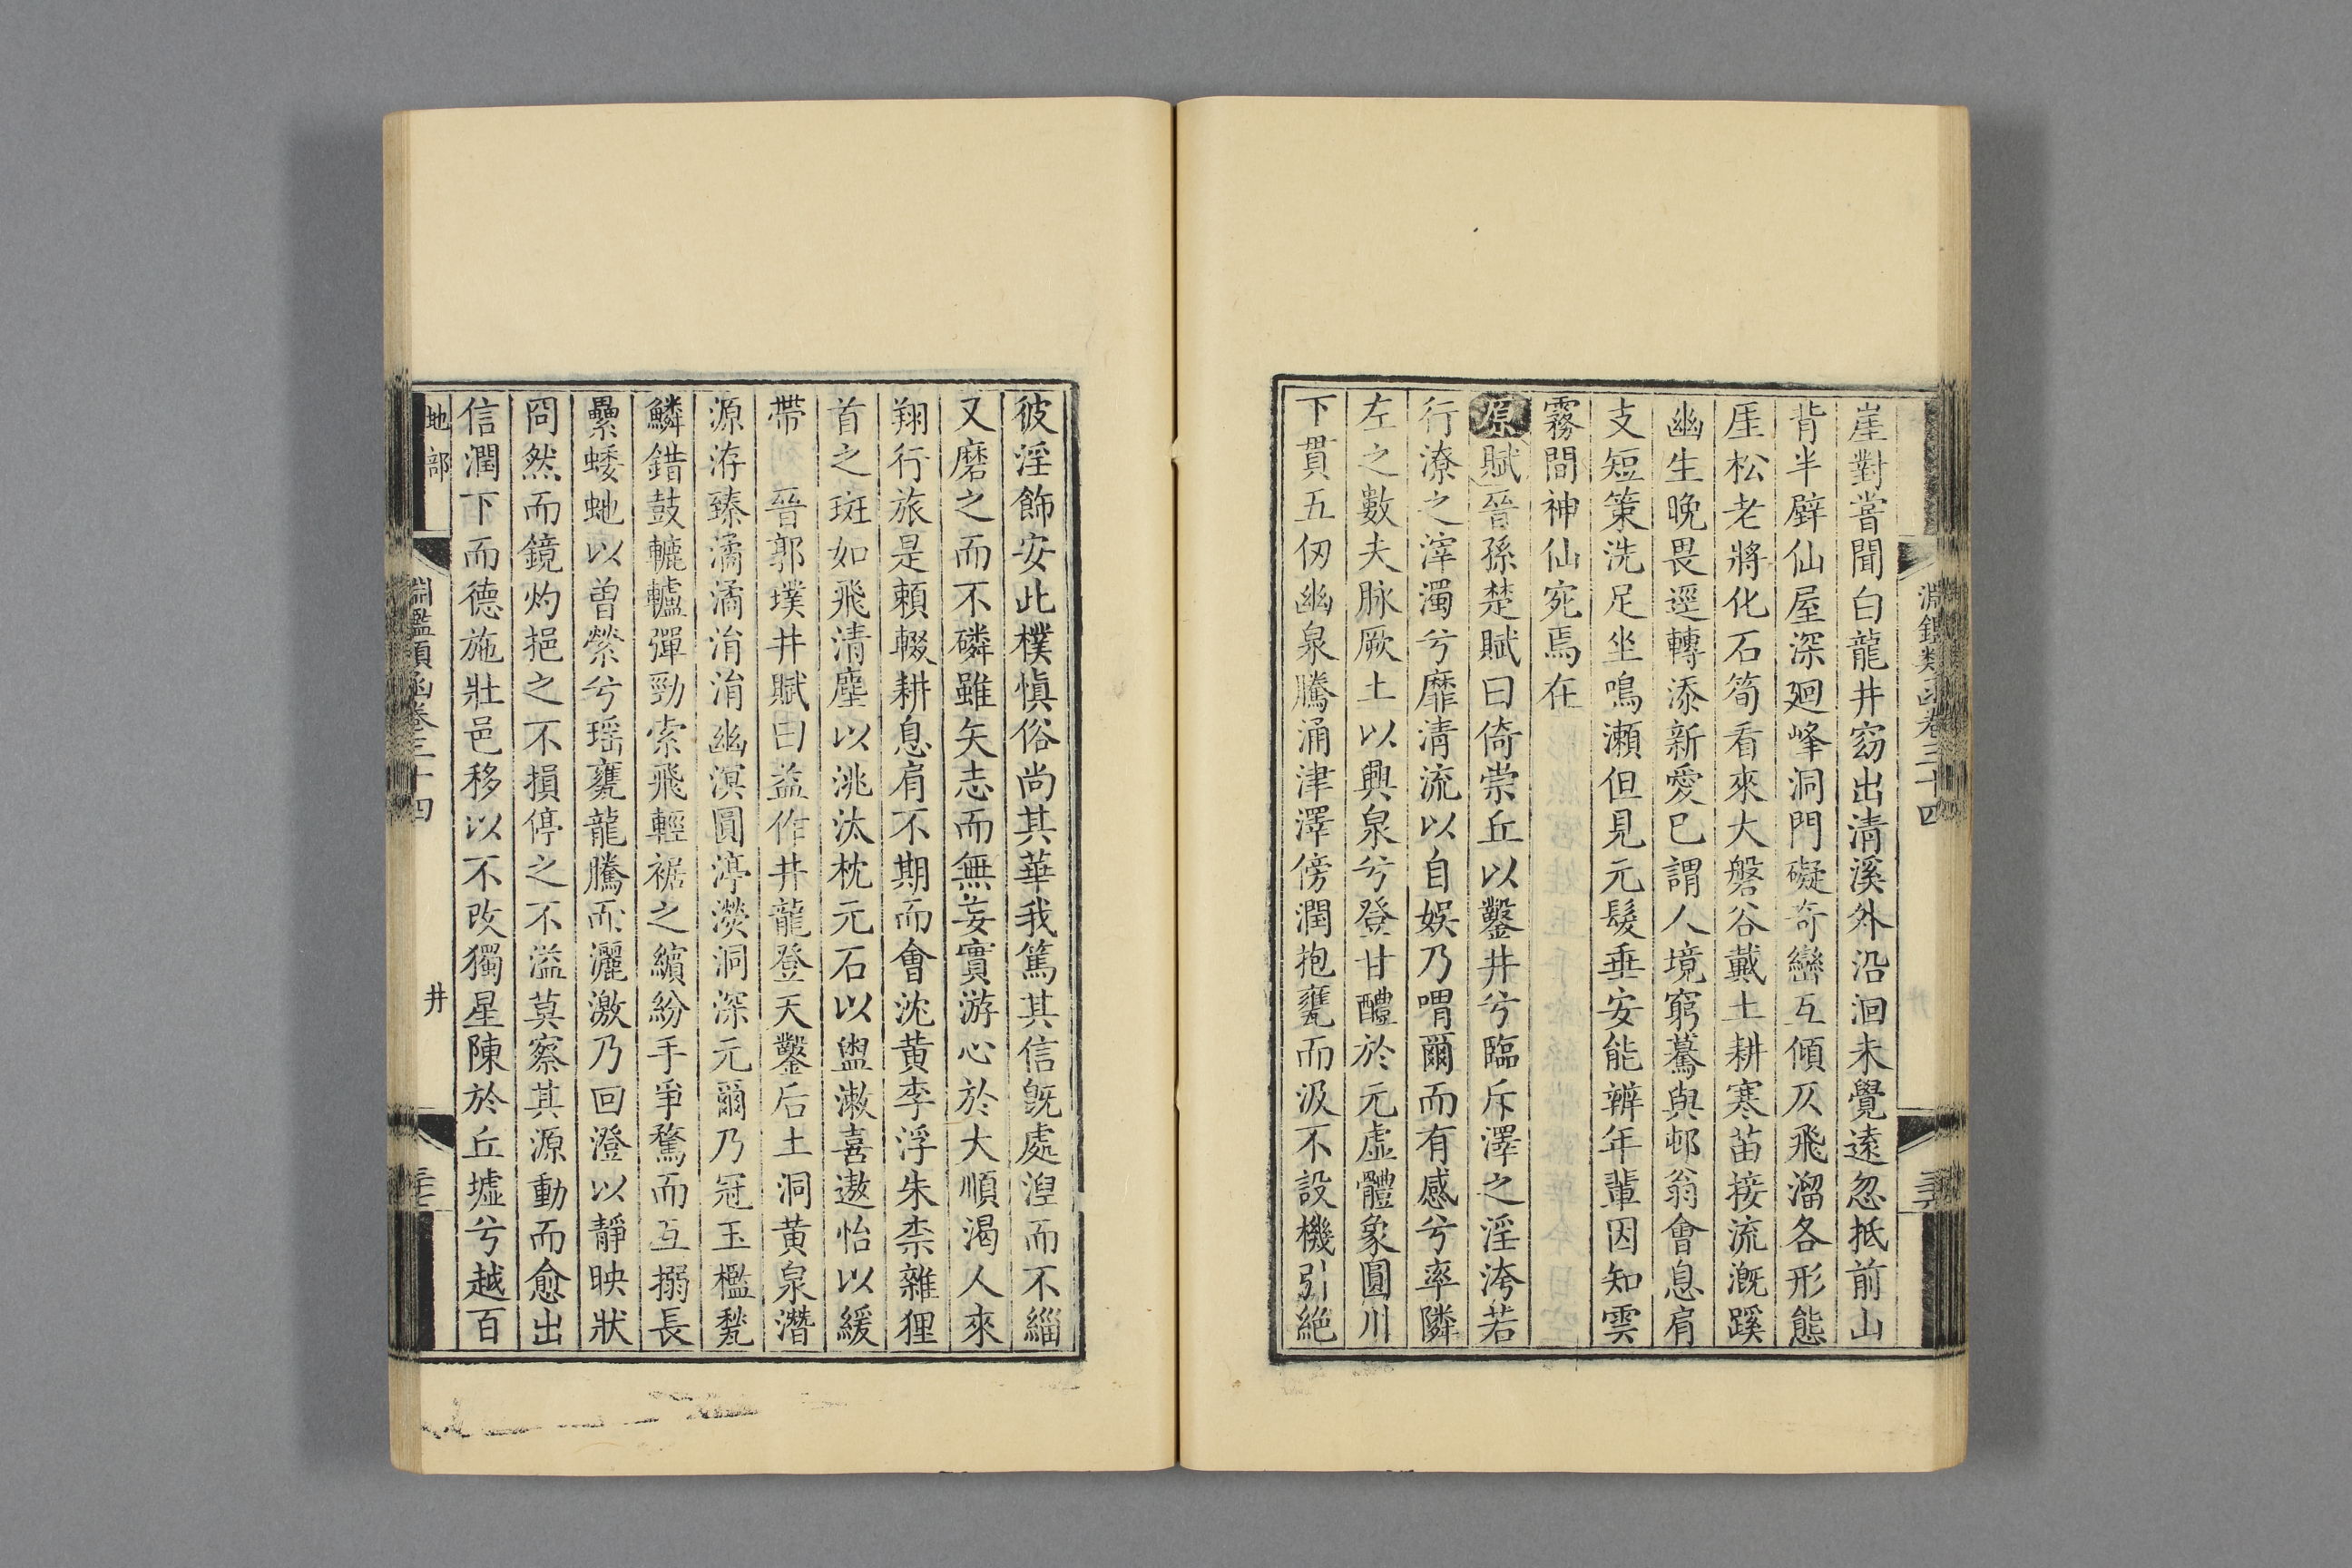 崖對嘗聞白龍井窈出清溪外沿洄未覺遠忽抵前山
背半壁仙屋深廻峰洞門礙奇巒互傾仄飛溜各形態
厓松老將化石筍看來大磐谷戴土耕寒苗接流漑蹊
幽生晚畏逕轉添新愛已謂人境窮驀與邨翁會息肩
支短策洗足坐鳴瀨但見元髮垂安能辨年輩因知雲
霧間神仙宛焉在
原賦晉孫楚賦曰倚崇丘以鑿井兮臨斥澤之淫洿若
行潦之滓濁兮靡清流以自娛乃喟爾而有感兮率隣
左之數夫脉厥土以興泉兮登甘醴於元虛體象圓川
下貫五仞幽泉騰涌津澤傍潤抱甕而汲不設機引絶
彼淫飾安此樸愼俗尚其華我篤其信旣處湼而不緇
又磨之而不磷雖矢志而無妄實游心於大順渴人來
翔行旅是賴輟耕息肩不期而會沈黄李浮朱柰雜狸
首之斑如飛清塵以洮汰枕元石以盥漱喜遨怡以緩
帶　晉郭璞井賦曰益作井龍登天鑿后土洞黄泉潛
源洊臻潏潏涓涓幽溟圓渟濙洞深元爾乃冠玉檻甃
鱗錯鼓轆轤彈勁索飛輕裾之繽紛手爭騖而互搦長
纍蜲虵以曽縈兮瑶甕龍騰而灑激乃回澄以靜映狀
冏然而鏡灼挹之不損停之不溢莫察其源動而愈出
信潤下而德施壯邑移以不改獨星陳於丘墟兮越百
地部
淵鑑類函卷三十四
井
淵鑑類函卷三十四